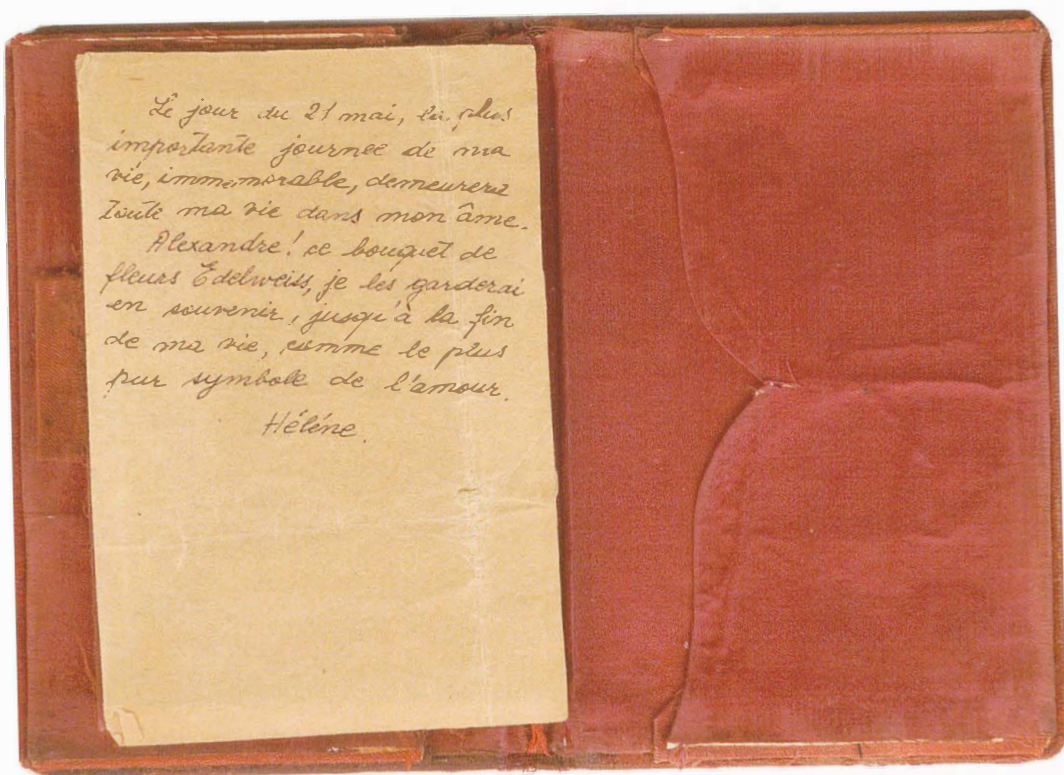 Le jour du 21 mai, la plus
importante journée de ma
vie, immemorable, demeurera
toute ma vie dans mon âme.
Alexandre! ce bouquet de
fleurs Edelweiss, je les garderai
en souvenir, jusqu'à la fin
de ma vie, comme le plus
pur symbole de l'amour.
Hélène.